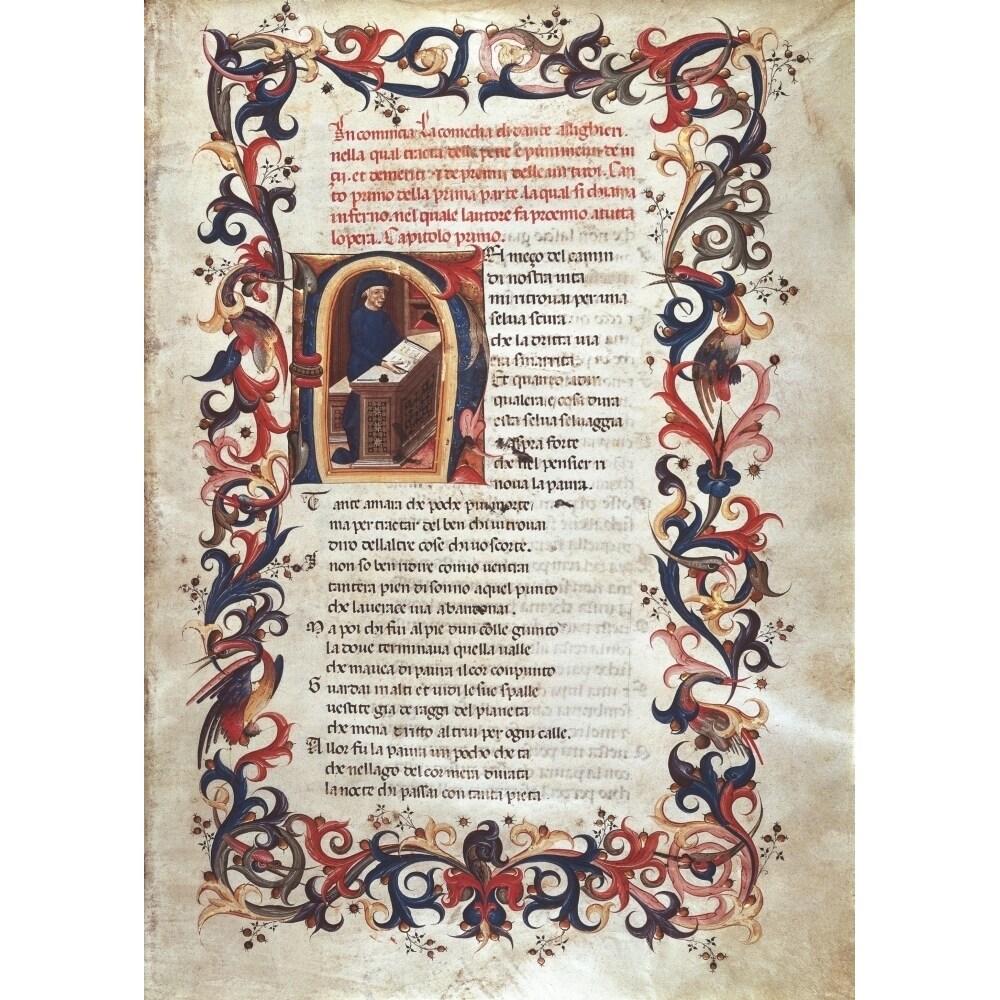 In commincia La comedia di dante allighieri.
nella qual tracta delle pene e punimenti de ui
tij. et demeriti 7 de premij delle uirtudi. Can
to primo della prima parte. la qual si chiama
inferno. nel quale lautore fa proemio a tutta
lopera. Capitolo primo.
NEl meço del camin
di nostra uita
mi ritrouai per una
selua scura.
che la dritta uia
era smarrita.
Et quanto a dir
qual era e cosa dura
esta selua seluaggia
7 aspra forte
che nel pensier ri
noua la paura.
Tante amara che poche piu morte
ma per tractar del ben chi ui trouai
diro dell altre cose chi uo scorte.
I non so ben ridire comio uentrai
tantera pien di sonno a quel punto
che la uerace uia abandonai.
Ma poi chi fui al pie dun colle giunto
la doue terminaua quella ualle
che mauea di paura il cor conpunto
Guardai in alti et uidi le sue spalle
uestite gia de raggi del pianeta
che mena dritto altrui per ogni calle.
Allor fu la paura un pocho cheta
che nel lago del cor mera durata
la nocte chi passai con tanta pieta